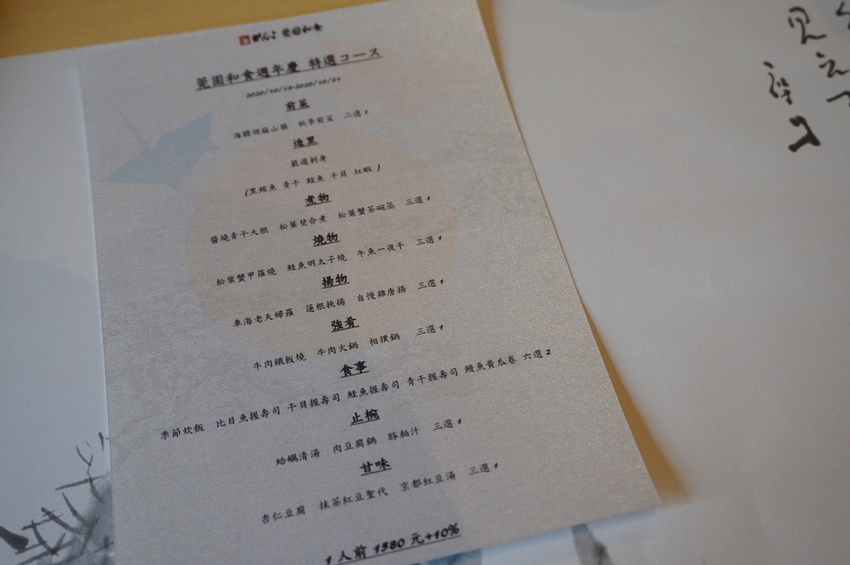 がんこ 莞固和食
莞固和食週年慶 特選コース
2020/10/12-2020/10/31
前菜
海膽胡麻山藥 秋季前菜 二選1
造里
嚴選刺身
(黑鮪魚 青干 鮭魚 干貝 紅蝦)
煮物
醬燒青干大根 松葉焚合煮 松葉蟹茶碗蒸 三選1
燒物
松葉蟹甲羅燒 鮭魚明太子燒 午魚一夜干 三選1
揚物
車海老天婦羅 蓮根挾揚 自慢雞唐揚 三選1
強肴
牛肉鐵板燒 牛肉火鍋 相撲鍋 三選1
食事
季節炊飯 比目魚握壽司 干貝握壽司 鮭魚握壽司 青干握壽司 鰻魚黃瓜卷 六選2
止椀
蛤蠣清湯 肉豆腐鍋 豚粕汁 三選1
甘味
杏仁豆腐 抹茶紅豆聖代 京都紅豆湯 三選1
1人前 1580元+10%
見